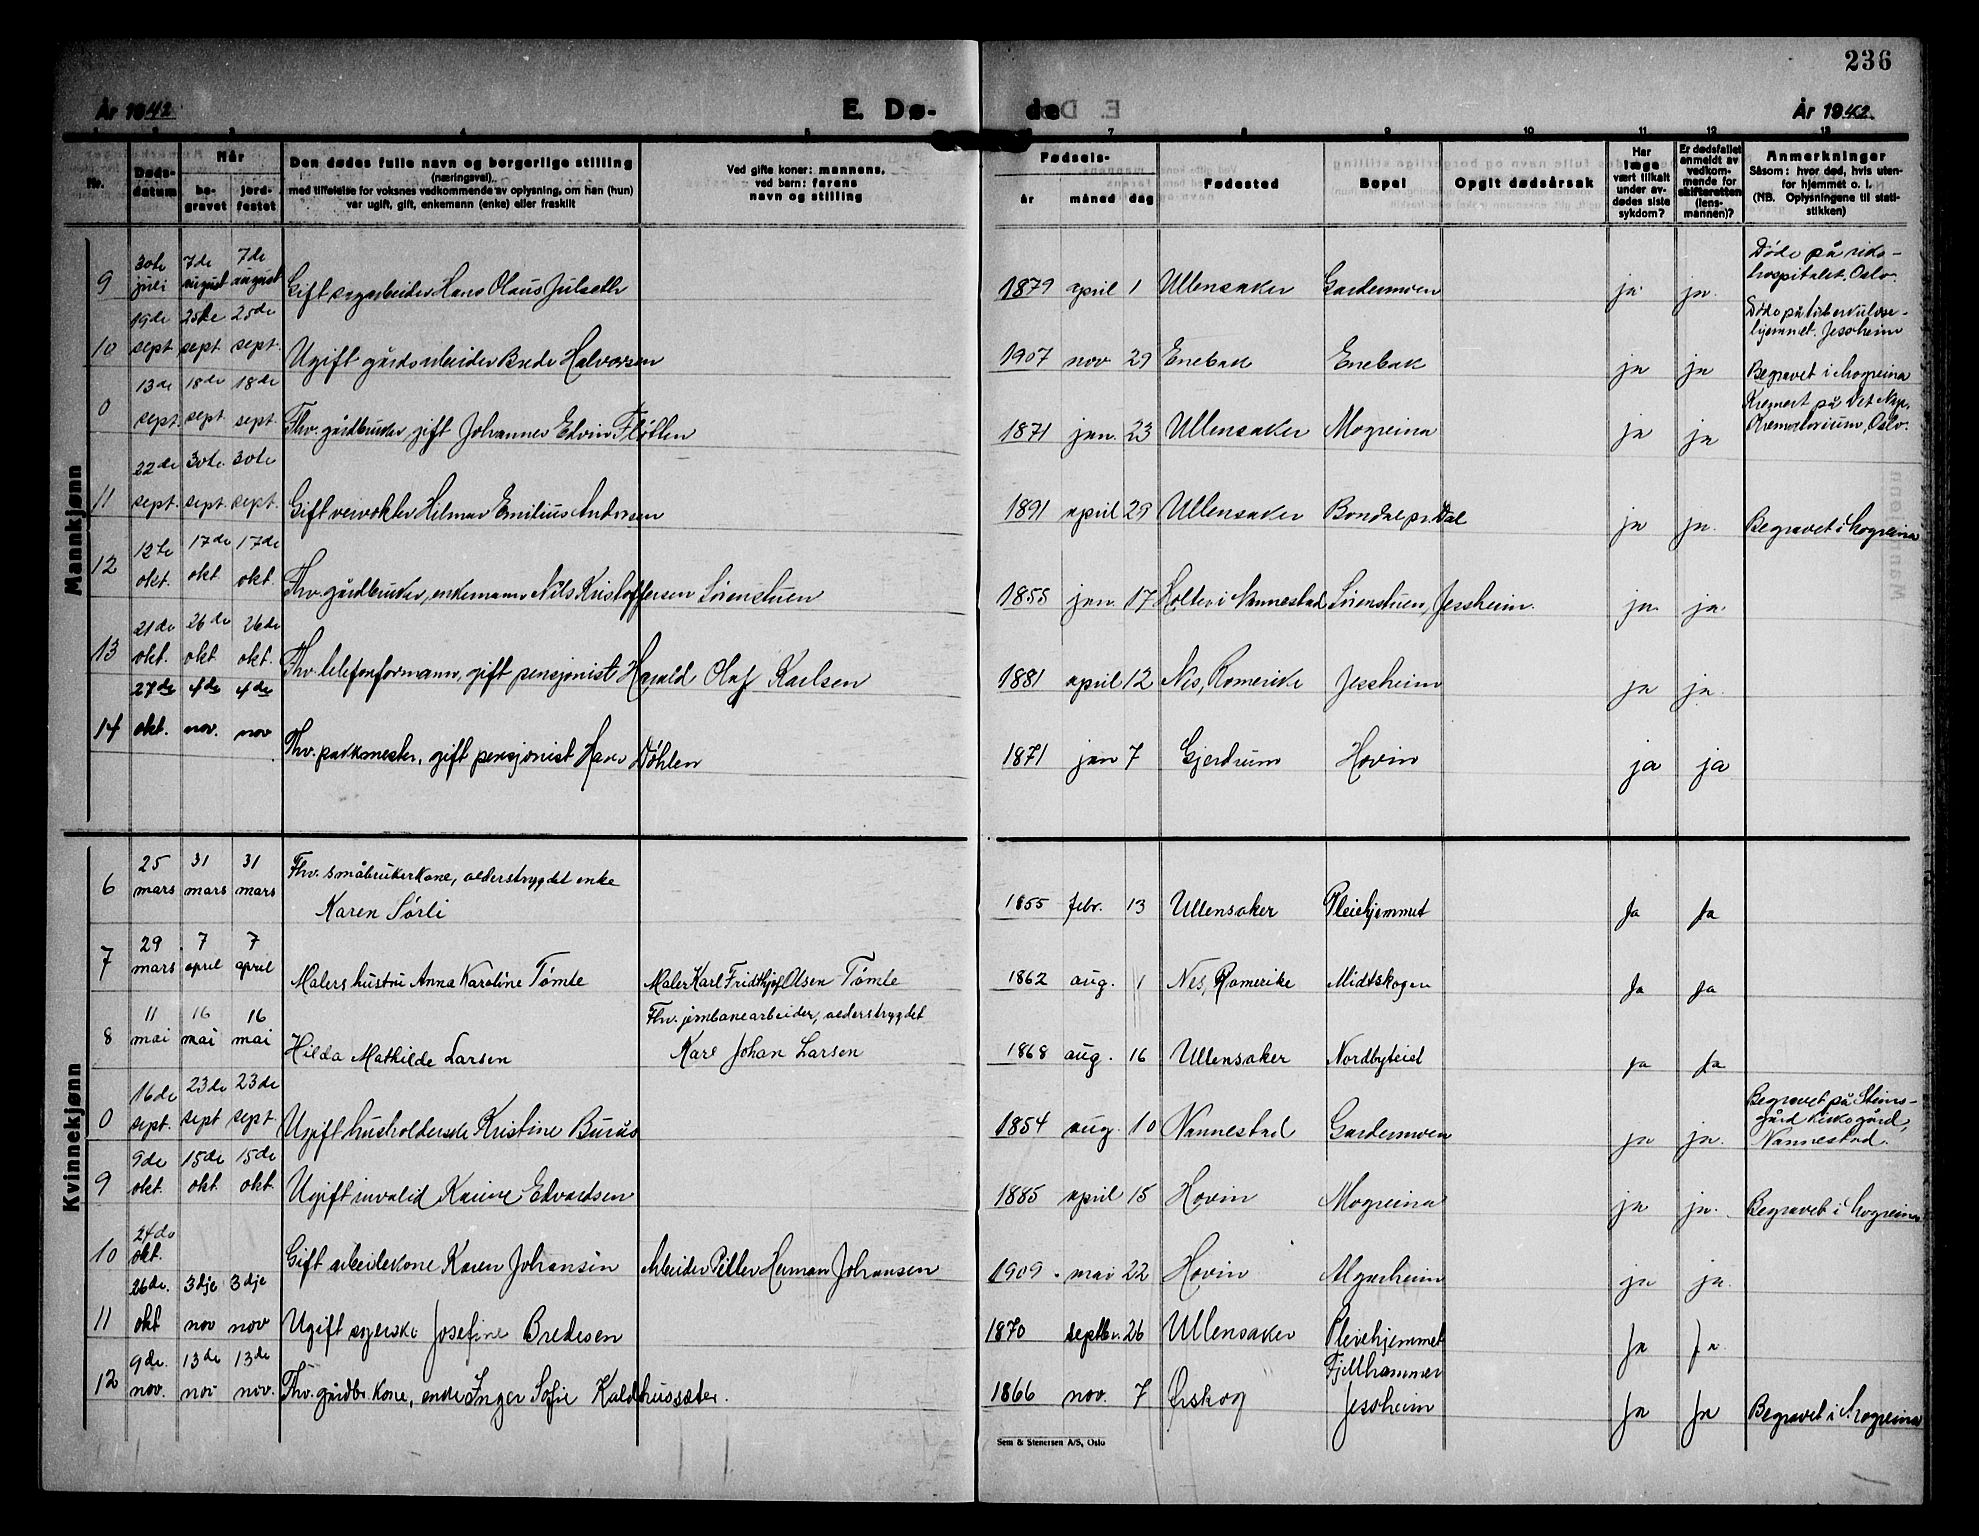 236
År 1942
E. Dø-
de
År 1942
1 2 3 4 5 7 8 9 10 11 12 13
Nr.
Døds-
datum
Når
be-
gravet
jord-
festet
Den dødes fulle navn og borgerlige stilling
(næringsvei),
med tilføielse for voksnes vedkommende av oplysning, om han (hun)
var ugift, gift, enkemann (enke) eller fraskilt
Ved gifte koner: mannens,
ved barn: farens
navn og stilling
Fødsels-
år måned dag
Fødested
Bopel
Opgit dødsårsak
Har
læge
vært tilkalt
under av-
dødes siste
sykdom?
Er dødsfallet
anmeldt av
vedkom-
mende for
skifteretten
(lens-
mannen)?
Anmerkninger
Såsom: hvor død, hvis uten-
for hjemmet o. l.
(NB. Oplysningene til stati-
stikken)
Mannkjønn
9 30te juli 7de august 7de august Gift sagarbeider Hans Olaus Julseth 1879 april 1 Ullensaker Gardermoen ja ja. Døde på riks-
hospitalet, Oslo.
10 19de sept 25de sept 25de sept. Ugift gårdsarbeider Brede Halvorsen 1907 nov 29 Enebak Enebak ja ja Døde på tuberkulose-
hjemmet, Jessheim
Begravet i Mogreina
0 13de sept. 18de sept 18de sept. Fhv. gårdbruker gift Johannes Edvin Fløtten 1871 jan. 23 Ullensaker Mogreina ja ja Kremert på Det Nye
Krematorium, Oslo.
11 22de sept. 30te sept. 30te sept. Gift veivokter Hilmar Emilius Andersen 1891 april 29 Ullensaker Bondal pr. Dal ja ja. Begravet i Mogreina
12 12te okt. 17de okt 17de okt. Fhv. gårdbruker, enkemann Nils Kristoffersen Sørenstuen 1855 jan. 17 Holter i Nannestad Sørenstuen, Jessheim. ja ja
13 21de okt. 26de okt 26de okt. Fhv. telefonformann, gift pensjonist Harald Olaf Karlsen 1881 april 12 Nes, Romerike Jessheim ja ja.
14 27de okt. 4de nov. 4de nov Fhv. pakkmester, gift pensjonist Hans Døhlen 1871 jan 7 Gjerdrum Hovin ja ja
Kvinnekjønn
6 25 mars 31 mars 31 mars Fhv. småbrukerkone, alderstrygdet enke
Karen Sørli 1855 febr. 13 Ullensaker Pleiehjemmet Ja Ja
7 29 mars 7 april 7 april Malers hustru Anna Karoline Tømte Maler Karl Fridthjof Olsen Tømte 1862 aug. 1 Nes, Romerike Midtskogen Ja Ja
8 11 mai 16 mai 16 mai Hilda Mathilde Larsen Fhv. jernbanearbeider, alderstrygdet
Karl Johan Larsen 1868 aug. 16 Ullensaker Nordbyteiet ja ja
0 16de sept. 23de sept 23de sept. Ugift husholderske Kristine Burås 1854 aug. 10 Nannestad Gardermoen ja ja. Begravet på Steins-
gård kirkegård,
Nannestad.
9 9de okt. 15de okt. 15de okt. Ugift invalid Karine Edvardsen 1885 april 15 Hovin Mogreina ja ja. Begravet i Mogreina
10 24de okt. Gift arbeiderkone Karen Johansen Arbeider Petter Herman Johansen 1909 mai 22 Hovin Algarheim ja ja.
11 26de. okt 3dje nov 3dje nov Ugift syerske Josefine Bredesen 1870 septbr. 26 Ullensaker Pleiehjemmet Ja Ja.
12 9de. nov. 13de nov 13de nov. Fhv. gårdbr. kone, enke Inger Sofie Kaldhussæter. 1866 nov. 7 Ørskog Fjellhammer
Jessheim Ja Ja Begravet i Mogreina
Sem & Stenersen A/S, Oslo